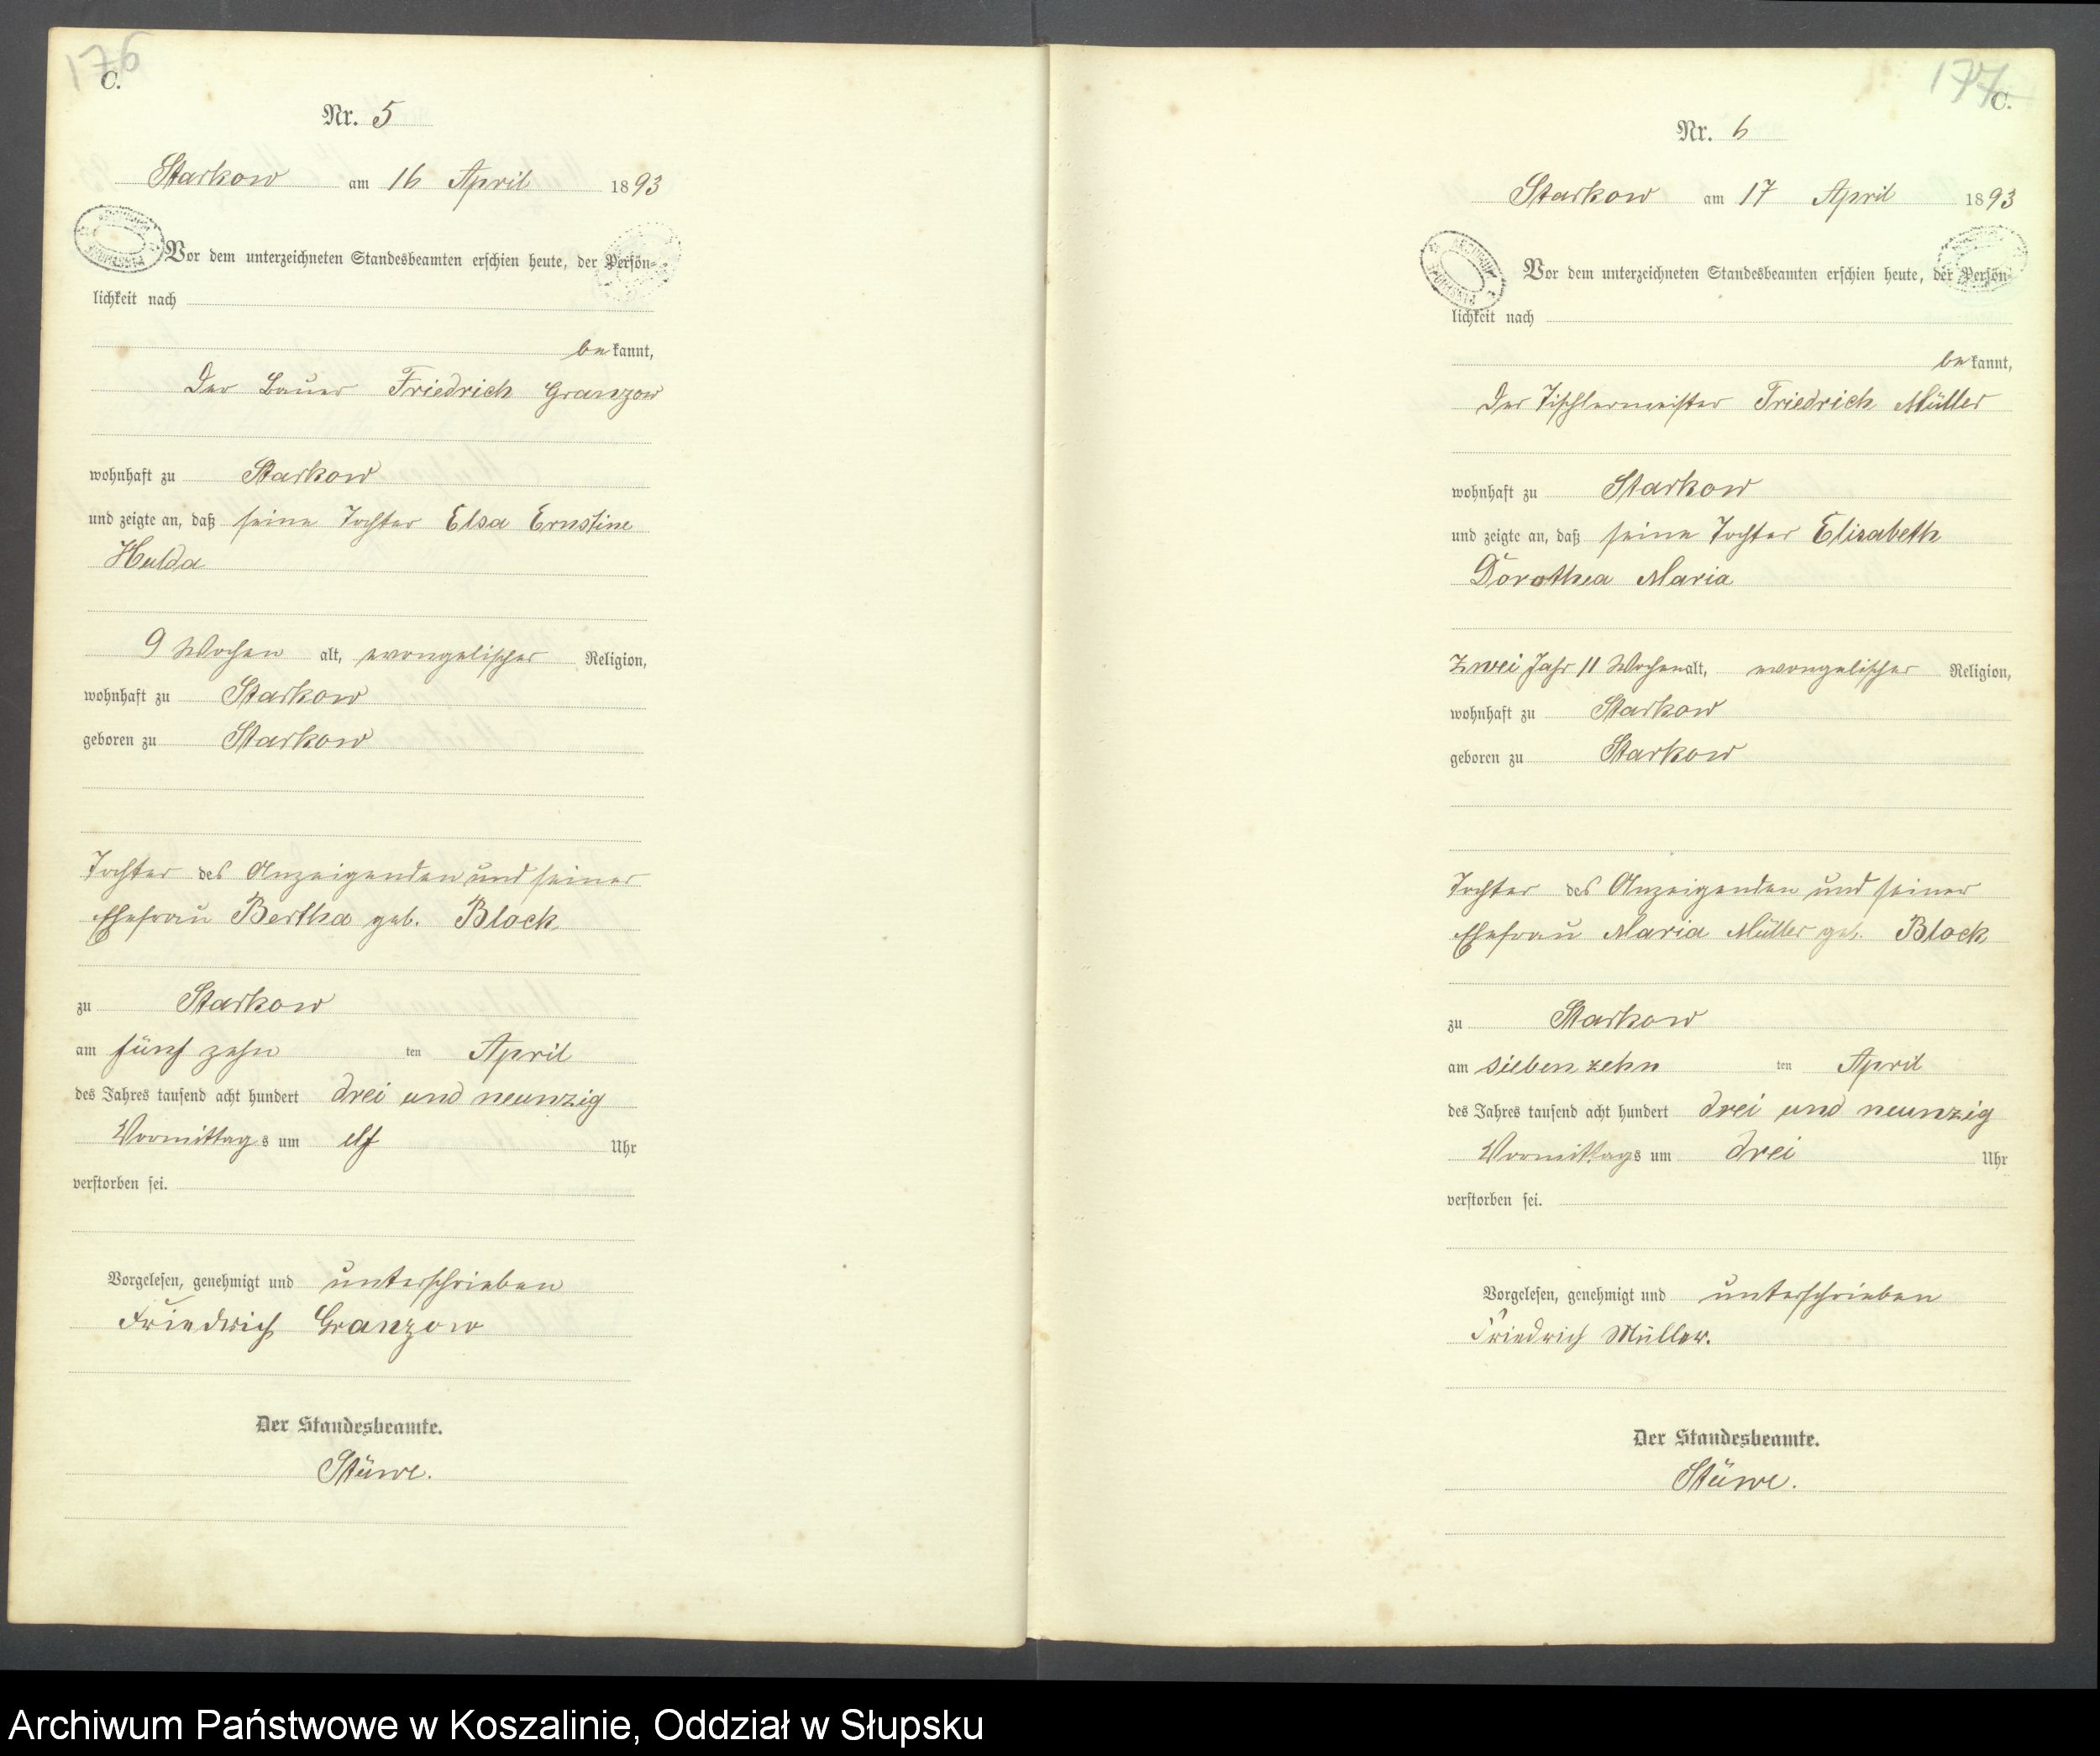 176
C.
Nr. 5
Starkow am 16 April 1893
Vor dem unterzeichneten Standesbeamten erschien heute, der Persön-
lichkeit nach
bekannt,
Der Bauer Friedrich Granzow
wohnhaft zu Starkow
und zeigte an, daß seine Tochter Elsa Ernstine
Hulda
9 Wochen alt, evangelischer Religion,
wohnhaft zu Starkow
geboren zu Starkow
Tochter des Anzeigenden und seiner
Ehefrau Bertha geb. Block
zu Starkow
am fünfzehn ten April
des Jahres tausend acht hundert drei und neunzig
Vormittags um elf Uhr
verstorben sei.
Vorgelesen, genehmigt und unterschrieben
Friedrich Granzow
Der Standesbeamte.
Stüwe.
177
C.
Nr. 6
Starkow am 17 April 1893
Vor dem unterzeichneten Standesbeamten erschien heute, der Persön-
lichkeit nach
bekannt,
Der Tischlermeister Friedrich Müller
wohnhaft zu Starkow
und zeigte an, daß seine Tochter Elisabeth
Dorothea Maria
Zwei Jahr 11 Wochen alt, evangelischer Religion,
wohnhaft zu Starkow
geboren zu Starkow
Tochter des Anzeigenden und seiner
Ehefrau Maria Müller geb. Block
zu Starkow
am siebenzehn ten April
des Jahres tausend acht hundert drei und neunzig
Vormittags um drei Uhr
verstorben sei.
Vorgelesen, genehmigt und unterschrieben
Friedrich Müller.
Der Standesbeamte.
Stüwe.
Archiwum Państwowe w Koszalinie, Oddział w Słupsku